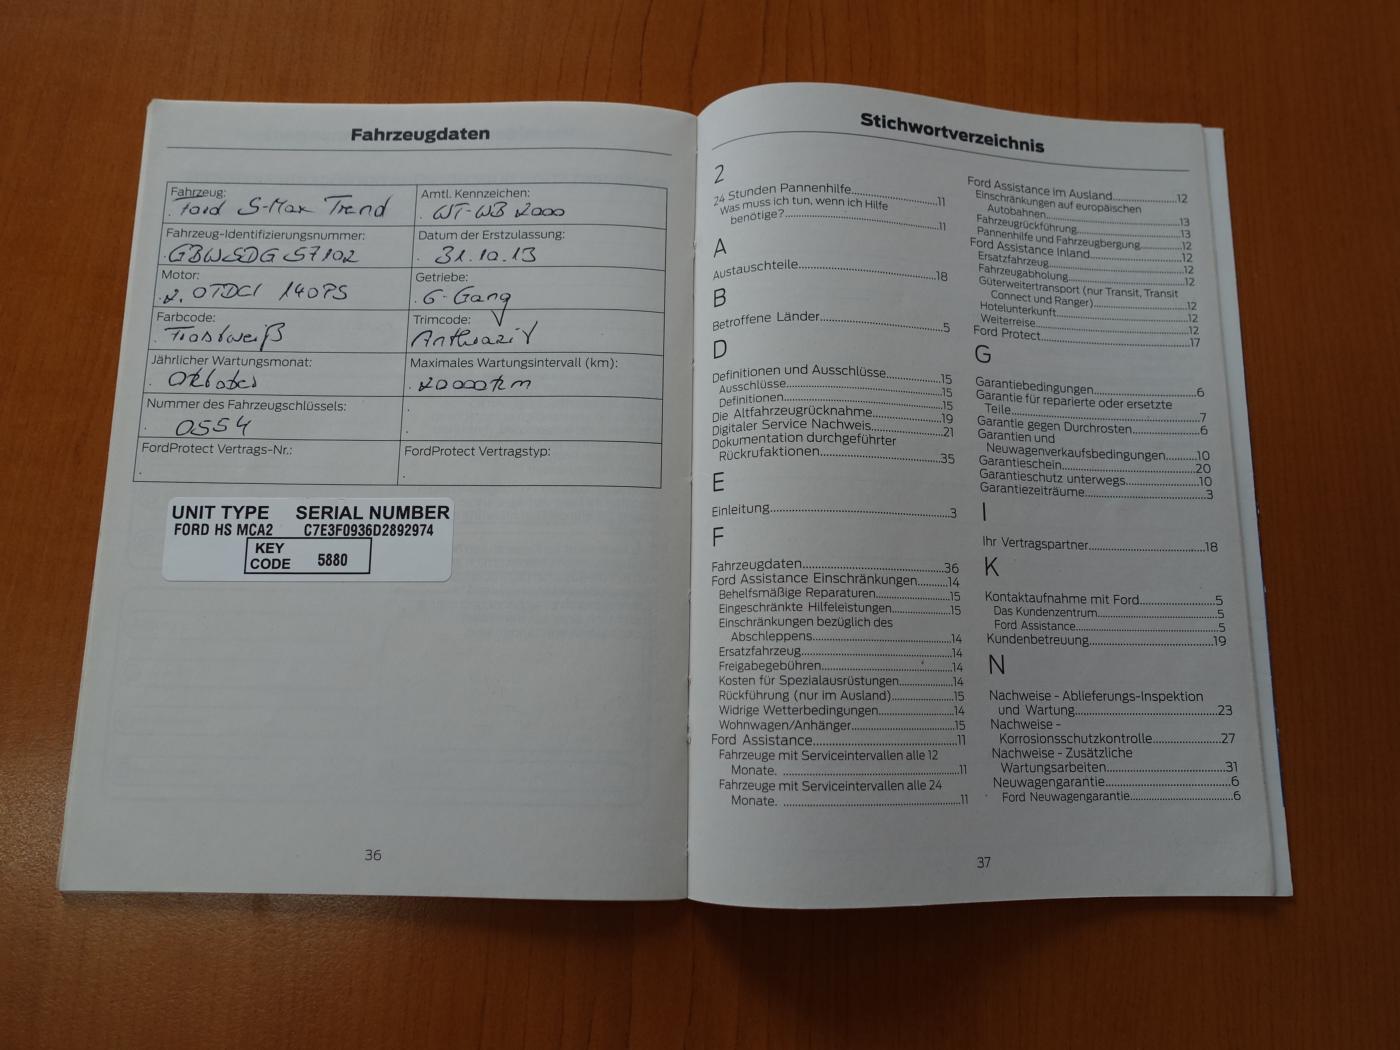 Fahrzeugdaten
Fahrzeug:
Ford S-Max Trend
Amtl. Kennzeichen:
WT-WB 2000
Fahrzeug-Identifizierungsnummer:
GBWSDG 57102
Datum der Erstzulassung:
31.10.13
Motor:
2.0TDCI 140PS
Getriebe:
6-Gang
Farbcode:
Frostweiß
Trimcode:
Anthrazit
Jährlicher Wartungsmonat:
Oktober
Maximales Wartungsintervall (km):
20000km
Nummer des Fahrzeugschlüssels:
0554
FordProtect Vertrags-Nr.:
FordProtect Vertragstyp:
UNIT TYPE SERIAL NUMBER
FORD HS MCA2 C7E3F0936D2892974
KEY CODE 5880
36
Stichwortverzeichnis
2
24 Stunden Pannenhilfe.....11
Was muss ich tun, wenn ich Hilfe
benötige?.....11
A
Austauschteile.....18
B
Betroffene Länder.....5
D
Definitionen und Ausschlüsse.....15
Ausschlüsse.....15
Definitionen.....15
Die Altfahrzeugrücknahme.....19
Digitaler Service Nachweis.....21
Dokumentation durchgeführter
Rückrufaktionen.....35
E
Einleitung.....3
F
Fahrzeugdaten.....36
Ford Assistance Einschränkungen.....14
Behelfsmäßige Reparaturen.....15
Eingeschränkte Hilfeleistungen.....15
Einschränkungen bezüglich des
Abschleppens.....14
Ersatzfahrzeug.....14
Freigabegebühren.....14
Kosten für Spezialausrüstungen.....14
Rückführung (nur im Ausland).....15
Widrige Wetterbedingungen.....14
Wohnwagen/Anhänger.....15
Ford Assistance.....11
Fahrzeuge mit Serviceintervallen alle 12
Monate. .....11
Fahrzeuge mit Serviceintervallen alle 24
Monate. .....11
Ford Assistance im Ausland.....12
Einschränkungen auf europäischen
Autobahnen.....13
Fahrzeugrückführung.....13
Pannenhilfe und Fahrzeugbergung.....12
Ford Assistance Inland.....12
Ersatzfahrzeug.....12
Fahrzeugabholung.....12
Güterweitertransport (nur Transit, Transit
Connect und Ranger).....12
Hotelunterkunft.....12
Weiterreise.....12
Ford Protect.....17
G
Garantiebedingungen.....6
Garantie für reparierte oder ersetzte
Teile.....7
Garantie gegen Durchrosten.....6
Garantien und
Neuwagenverkaufsbedingungen.....10
Garantieschein.....20
Garantieschutz unterwegs.....10
Garantiezeiträume.....3
I
Ihr Vertragspartner.....18
K
Kontaktaufnahme mit Ford.....5
Das Kundenzentrum.....5
Ford Assistance.....5
Kundenbetreuung.....19
N
Nachweise - Ablieferungs-Inspektion
und Wartung.....23
Nachweise -
Korrosionsschutzkontrolle.....27
Nachweise - Zusätzliche
Wartungsarbeiten.....31
Neuwagengarantie.....6
Ford Neuwagengarantie.....6
37